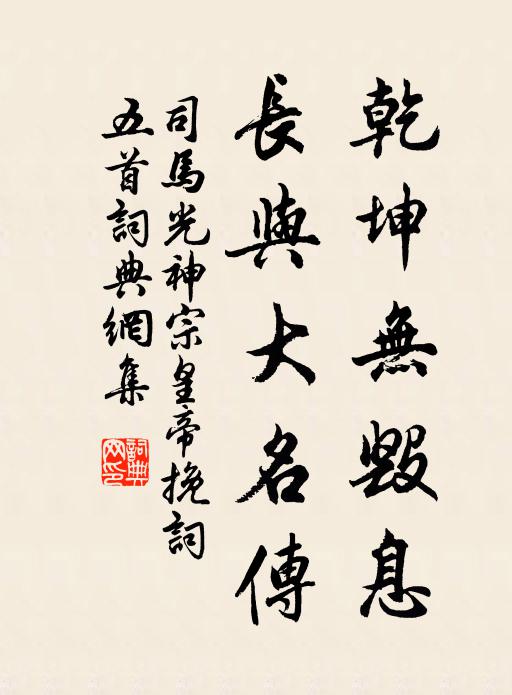 乾坤無毀息
長與大名傳
司馬光神宗皇帝挽詞
五首詞典網集
詞典
网印